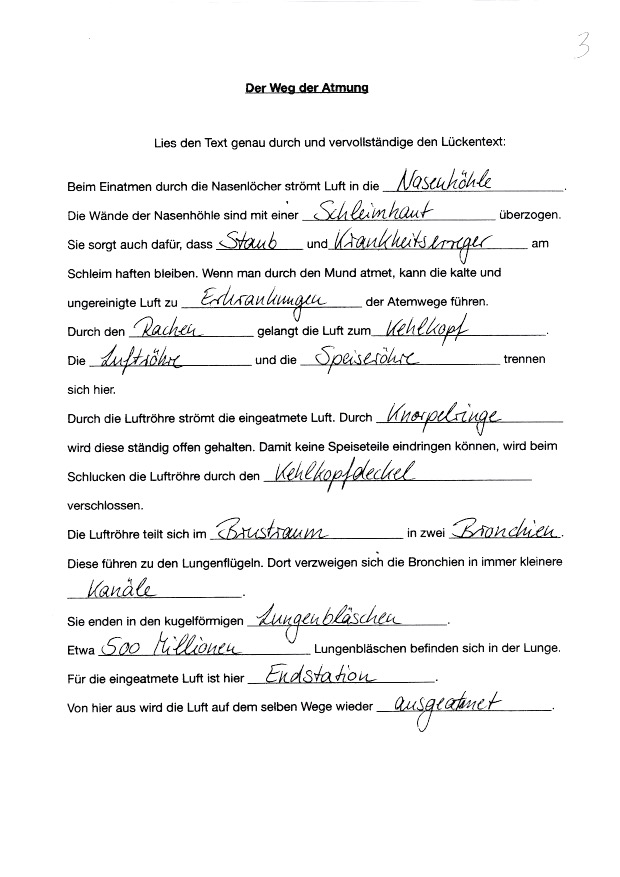 3
Der Weg der Atmung
Lies den Text genau durch und vervollständige den Lückentext:
Beim Einatmen durch die Nasenlöcher strömt Luft in die Nasenhöhle.
Die Wände der Nasenhöhle sind mit einer Schleimhaut überzogen.
Sie sorgt auch dafür, dass Staub und Krankheitserreger am
Schleim haften bleiben. Wenn man durch den Mund atmet, kann die kalte und
ungereinigte Luft zu Erkrankungen der Atemwege führen.
Durch den Rachen gelangt die Luft zum Kehlkopf.
Die Luftröhre und die Speiseröhre trennen
sich hier.
Durch die Luftröhre strömt die eingeatmete Luft. Durch Knorpelringe
wird diese ständig offen gehalten. Damit keine Speiseteile eindringen können, wird beim
Schlucken die Luftröhre durch den Kehlkopfdeckel
verschlossen.
Die Luftröhre teilt sich im Brustraum in zwei Bronchien.
Diese führen zu den Lungenflügeln. Dort verzweigen sich die Bronchien in immer kleinere
Kanäle.
Sie enden in den kugelförmigen Lungenbläschen.
Etwa 500 Millionen Lungenbläschen befinden sich in der Lunge.
Für die eingeatmete Luft ist hier Endstation.
Von hier aus wird die Luft auf dem selben Wege wieder ausgeatmet.